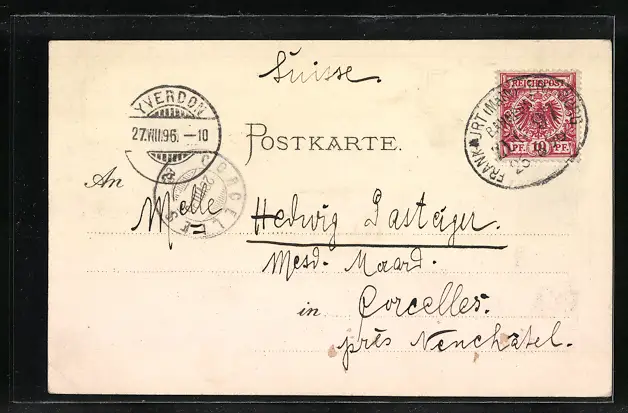 Suisse.
REICHSPOST
10 PF. 10 PF.
FRANKFURT (MAIN)
YVERDON
27.VIII.96. –10
POSTKARTE.
CORCELLES
An Melle Hedwig Pasteiger.
Mesd. Maard.
in Corcelles.
près Neuchâtel.